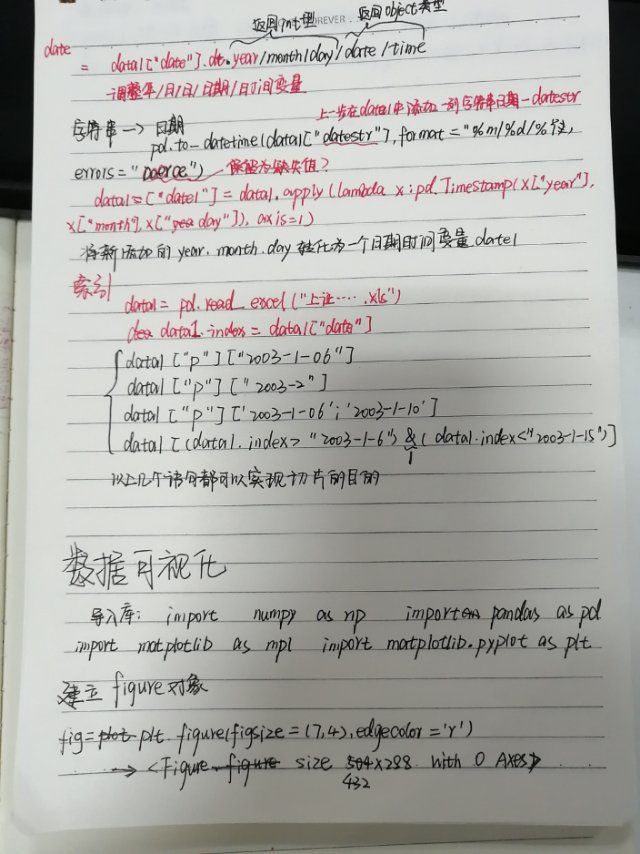 返回int型 返回object类型
OREVER
date = data1["date"].dt.year/month/day/date/time
调整年/月/日/日期/日时间变量
上一步在date1中添加一列字符串日期-datestr
字符串→日期
pd.to_datetime(data1["datestr"], format="%m/%d/%Y,
errors="coerce") 保留为缺失值?
data1=["date1"]=data1.apply(lambda x:pd.Timestamp(x["year"],
x["month"], x["day"]), axis=1)
将新添加的year. month. day 转化为一个日期时间变量date1
索引
data1 = pd.read_excel("上证.....xls")
data1.index = data1["date"]
data1["p"]["2003-1-06"]
data1["p"]["2003-2"]
data1["p"]['2003-1-06';'2003-1-10']
data1[(data1.index>"2003-1-6")&(data1.index<"2003-1-15")]
以上几个语句都可以实现切片的目的
数据可视化
导入库: import numpy as np import pandas as pd
import matplotlib as mpl import matplotlib.pyplot as plt
建立figure对象
fig=plt.figure(figsize=(7,4),edgecolor='r')
→<Figure size 504×288 with 0 Axes>
432